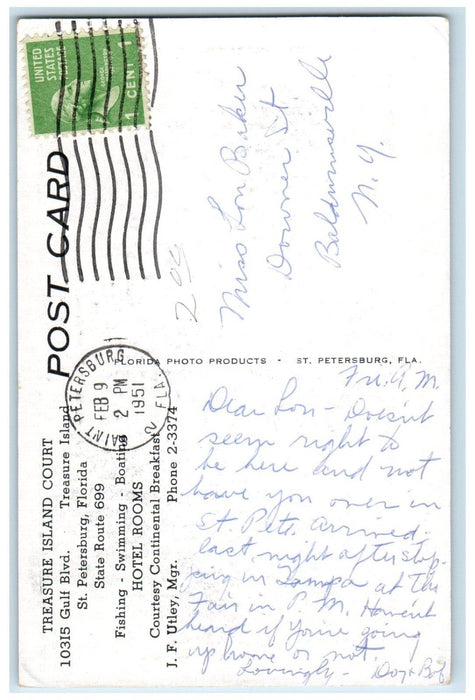 POST CARD
UNITED
STATES
POSTAGE
1 CENT 1
SAINT PETERSBURG, FLA.
FEB 9
2 PM
1951
2
TREASURE ISLAND COURT
10315 Gulf Blvd. Treasure Island
St. Petersburg, Florida
State Route 699
Fishing - Swimming - Boating
HOTEL ROOMS
Courtesy Continental Breakfast
J. F. Utley, Mgr. Phone 2-3374
FLORIDA PHOTO PRODUCTS - ST. PETERSBURG, FLA.
2 00
Miss Lon Baker
Downer St
Baldwinsville
N. Y.
Fri. A. M.
Dear Lon - Doesn't
seem right to
be here and not
have you over in
St. Pete. Arrived
last night after stop-
ping in Tampa at the
Fair in P. M. Haven't
heard if you're going
up home or not.
Lovingly - Dot + Bob